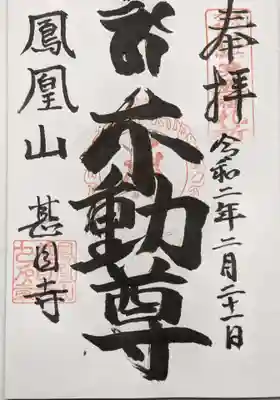 奉拝
令和二年二月二十一日
不動尊
鳳凰山
甚目寺